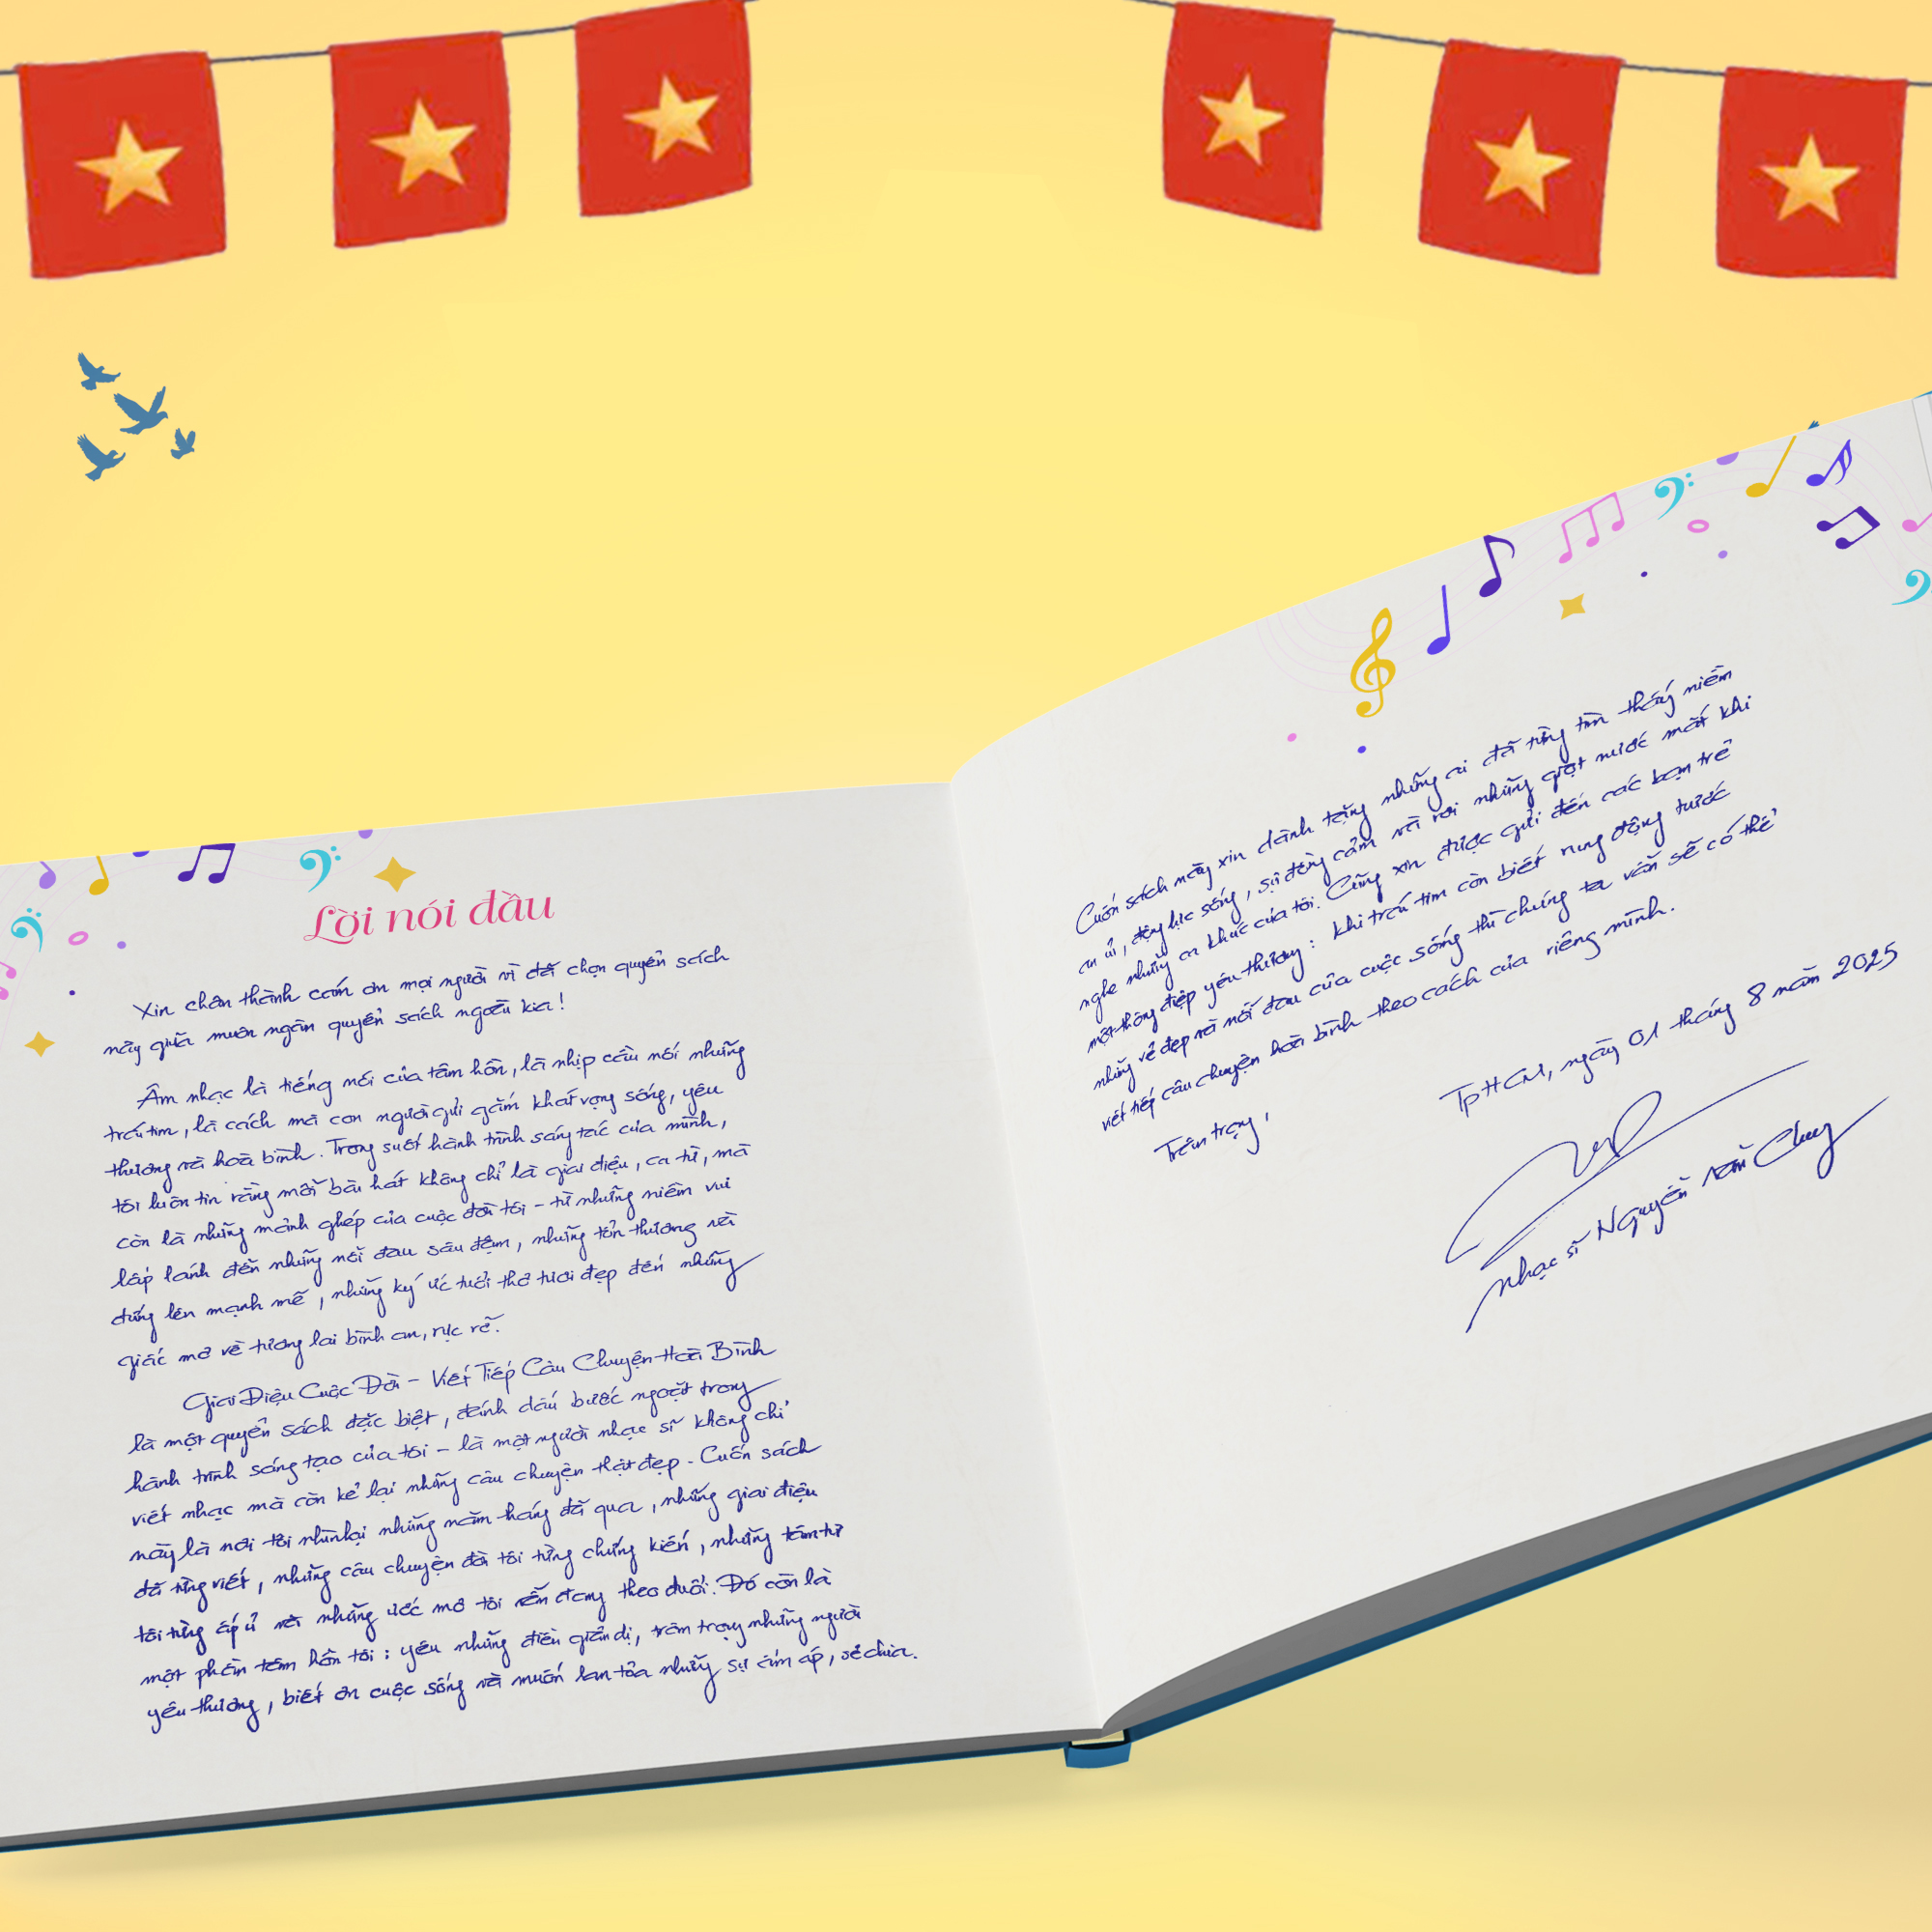 Lời nói đầu
Xin chân thành cảm ơn mọi người vì đã chọn quyển sách
này giữa muôn ngàn quyển sách ngoài kia!
Âm nhạc là tiếng nói của tâm hồn, là nhịp cầu nối những
trái tim, là cách mà con người gửi gắm khát vọng sống, yêu
thương và hoà bình. Trong suốt hành trình sáng tác của mình,
tôi luôn tin rằng mỗi bài hát không chỉ là giai điệu, ca từ, mà
còn là những mảnh ghép của cuộc đời tôi - từ những niềm vui
lấp lánh đến những nỗi đau sâu đậm, những tổn thương và
đứng lên mạnh mẽ, những ký ức tuổi thơ tươi đẹp đến những
giấc mơ về tương lai bình an, rực rỡ.
Giai Điệu Cuộc Đời - Viết Tiếp Câu Chuyện Hoà Bình
là một quyển sách đặc biệt, đánh dấu bước ngoặt trong
hành trình sáng tạo của tôi - là một người nhạc sĩ không chỉ
viết nhạc mà còn kể lại những câu chuyện thật đẹp. Cuốn sách
này là nơi tôi nhìn lại những năm tháng đã qua, những giai điệu
đã từng viết, những câu chuyện đời tôi từng chứng kiến, những tâm tư
tôi từng ấp ủ và những ước mơ tôi vẫn đang theo đuổi. Đó còn là
một phần tâm hồn tôi: yêu những điều giản dị, trân trọng những người
yêu thương, biết ơn cuộc sống và muốn lan tỏa những sự ấm áp, sẻ chia.
Cuốn sách này xin dành tặng những ai đã từng tìm thấy niềm
an ủi, động lực sống, sự đồng cảm và rơi những giọt nước mắt khi
nghe những ca khúc của tôi. Cũng xin được gửi đến các bạn trẻ
một thông điệp yêu thương: khi trái tim còn biết rung động trước
những vẻ đẹp và nỗi đau của cuộc sống thì chúng ta vẫn sẽ có thể
viết tiếp câu chuyện hoà bình theo cách của riêng mình.
Trân trọng,
TpHCM, ngày 01 tháng 8 năm 2025
Nhạc sĩ Nguyễn Văn Chung